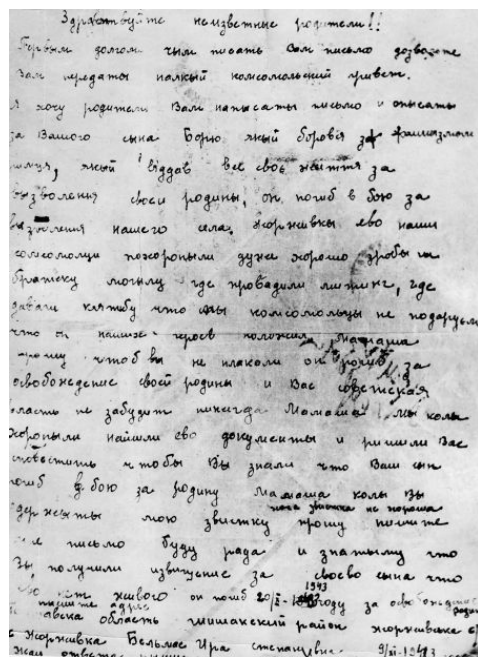 Здравствуйте неизвестные родители!!
Первым долгом чым писать Вам письмо дозвольте
Вам передаты палкый комсомольский привет.
Я хочу родители Вам написаты письмо и описать
за Вашого сына Борю якый боровся за
якый віддав все свое життя за
вызволення своей родины, он погиб в бою за
вызволення нашего села, Жоржывкы ево наши
комсомолци похоронылы дуже хорошо зробылы
братску могылу где проводили митинг, где
давали клятбу что мы комсомольцы не подаруем
что он кров положил мамаша
прошу чтоб вы не плакали он погиб за
освобождение своей родины и Вас советская
власть не забудит никегда Мамаша мы колы
хоронылы найшли ево документы и ришили Вас
сповестить чтобы Вы знали что Ваш сын
погиб в бою за родину Мамаша колы Вы
одержыты мою звистку прошу пишите
хоча звистка не хороша
мне письмо буду рада и знатыму что
Вы получили извищение за своево сына что
ево нет живого он погиб 20/ 1943 году за освобождение родины
пишите адрес
область шишакский район жоржывка
с Жоржывка Бельмас Ира степановна 9/ 1943
Жду ответа